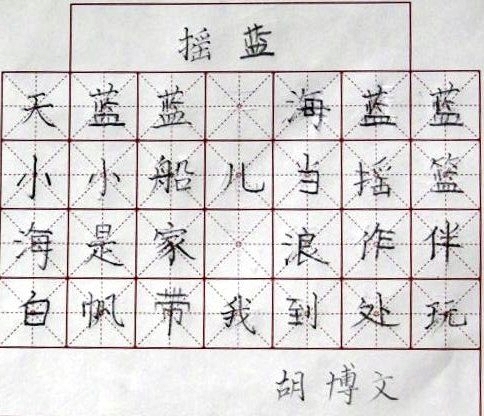 摇蓝
天蓝蓝 海蓝蓝
小小船儿当摇篮
海是家 浪作伴
白帆带我到处玩
胡博文